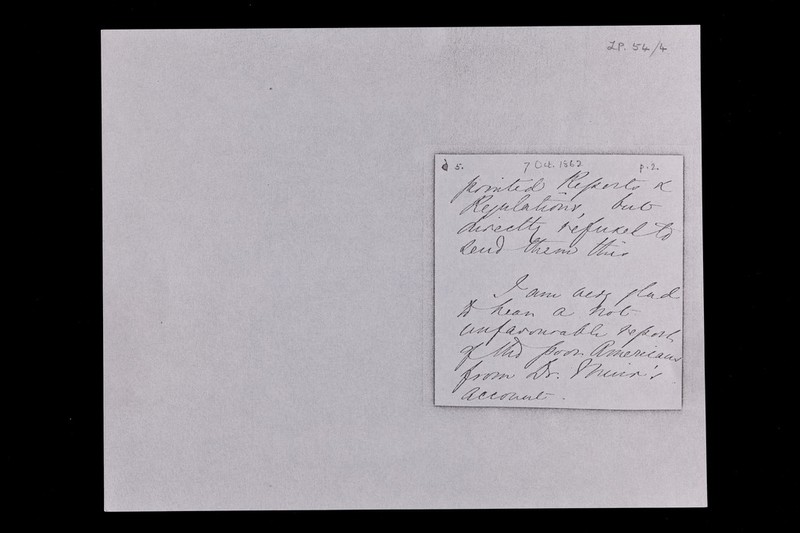 LP. 54/4
5. 7 Oct. 1862 p.2.
printed Reports &
Regulations, but
directly refused to
send them this
I am very glad
to hear a not
unfavourable report
of the poor Americans
from Dr. Muir's
account.